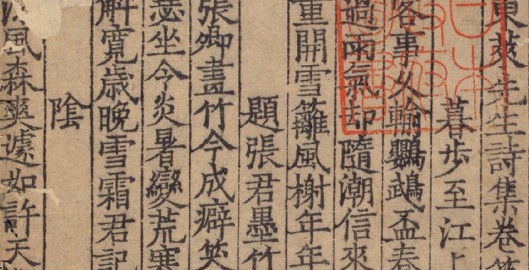 東萊先生詩集卷
暮步至江上
客事久輸鸚鵡盃春
過雨氣却隨潮信來
重開雪籬風榭年年
題張君墨竹
張卿畫竹今成癖笑
坐今炎暑變荒寒
解寛歳晚雪霜君記
陰
風森爽遽如許天